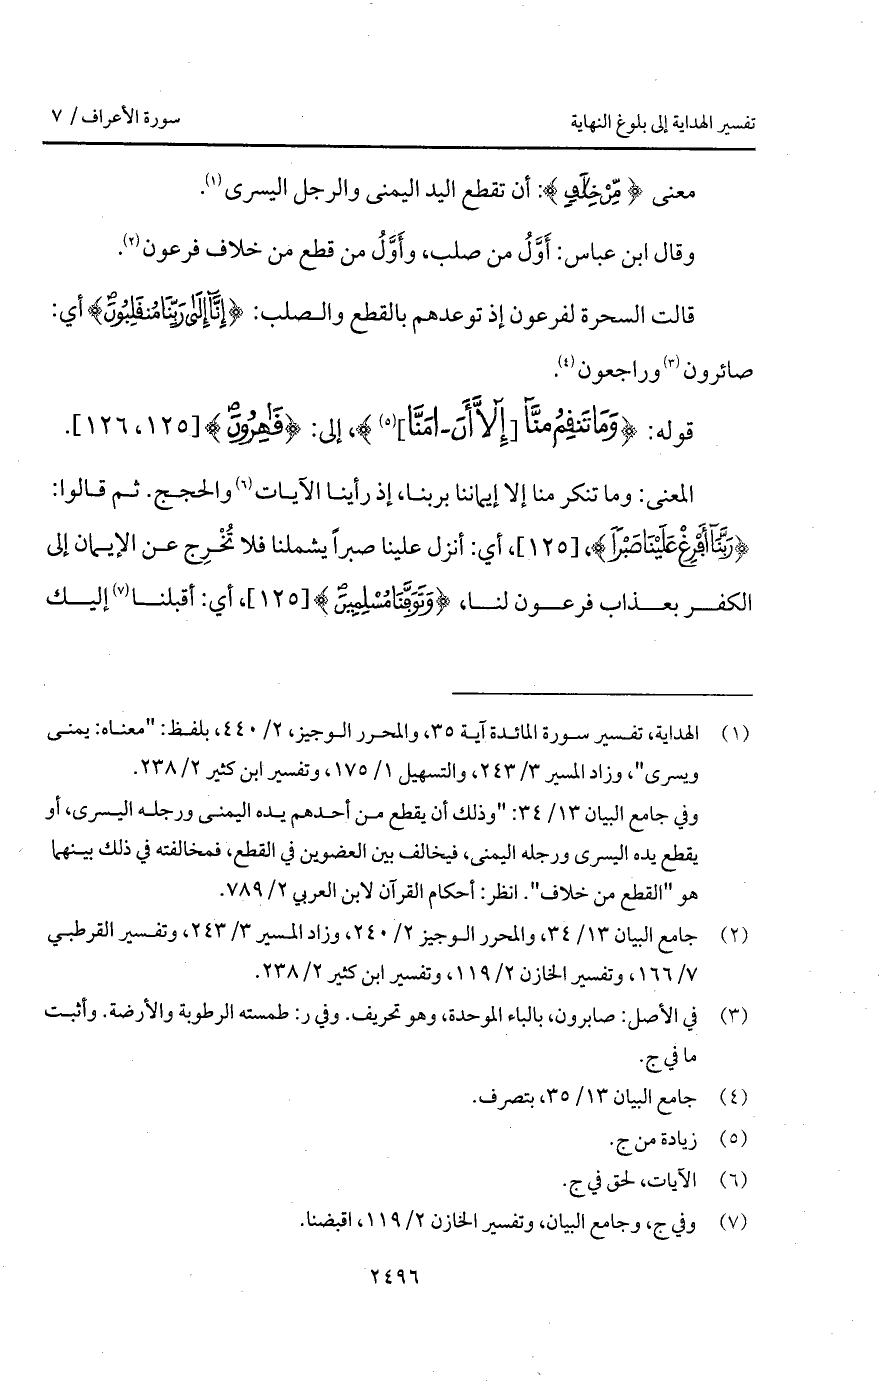 تفسير الهداية إلى بلوغ النهاية
سورة الأعراف / ٧
معنى ﴿ مِّنْ خِلَٰفٍ ﴾: أن تقطع اليد اليمنى والرجل اليسرى(١).
وقال ابن عباس: أَوَّلُ من صلب، وأَوَّلُ من قطع من خلاف فرعون(٢).
قالت السحرة لفرعون إذ توعدهم بالقطع والصلب: ﴿إِنَّآ إِلَىٰ رَبِّنَا مُنقَلِبُونَ﴾ أي:
صائرون(٣) وراجعون(٤).
قوله: ﴿ وَمَا تَنقِمُ مِنَّآ [إِلَّآ أَنَ ـ امَنَّا](٥) ﴾، إلى: ﴿ قَٰهِرُونَ ﴾ [١٢٥، ١٢٦].
المعنى: وما تنكر منا إلا إيماننا بربنا، إذ رأينا الآيات(٦) والحجج. ثم قالوا:
﴿رَبَّنَآ أَفْرِغْ عَلَيْنَا صَبْراً﴾، [١٢٥]، أي: أنزل علينا صبراً يشملنا فلا تُخْرِج عن الإيمان إلى
الكفر بعذاب فرعون لنا، ﴿وَتَوَفَّنَا مُسْلِمِينَ﴾ [١٢٥]، أي: أقبلنا(٧) إليك
(١) الهداية، تفسير سورة المائدة آية ٣٥، والمحرر الوجيز، ٢/ ٤٤٠، بلفظ: "معناه: يمنى
ويسرى"، وزاد المسير ٣/ ٢٤٣، والتسهيل ١/ ١٧٥، وتفسير ابن كثير ٢/ ٢٣٨.
وفي جامع البيان ١٣/ ٣٤: "وذلك أن يقطع من أحدهم يده اليمنى ورجله اليسرى، أو
يقطع يده اليسرى ورجله اليمنى، فيخالف بين العضوين في القطع، فمخالفته في ذلك بينهما
هو "القطع من خلاف". انظر: أحكام القرآن لابن العربي ٢/ ٧٨٩.
(٢) جامع البيان ١٣/ ٣٤، والمحرر الوجيز ٢/ ٢٤٠، وزاد المسير ٣/ ٢٤٣، وتفسير القرطبي
٧/ ١٦٦، وتفسير الخازن ٢/ ١١٩، وتفسير ابن كثير ٢/ ٢٣٨.
(٣) في الأصل: صابرون، بالباء الموحدة، وهو تحريف. وفي ر: طمسته الرطوبة والأرضة. وأثبت
ما في ج.
(٤) جامع البيان ١٣/ ٣٥، بتصرف.
(٥) زيادة من ج.
(٦) الآيات، لحق في ج.
(٧) وفي ج، وجامع البيان، وتفسير الخازن ٢/ ١١٩، اقبضنا.
٢٤٩٦